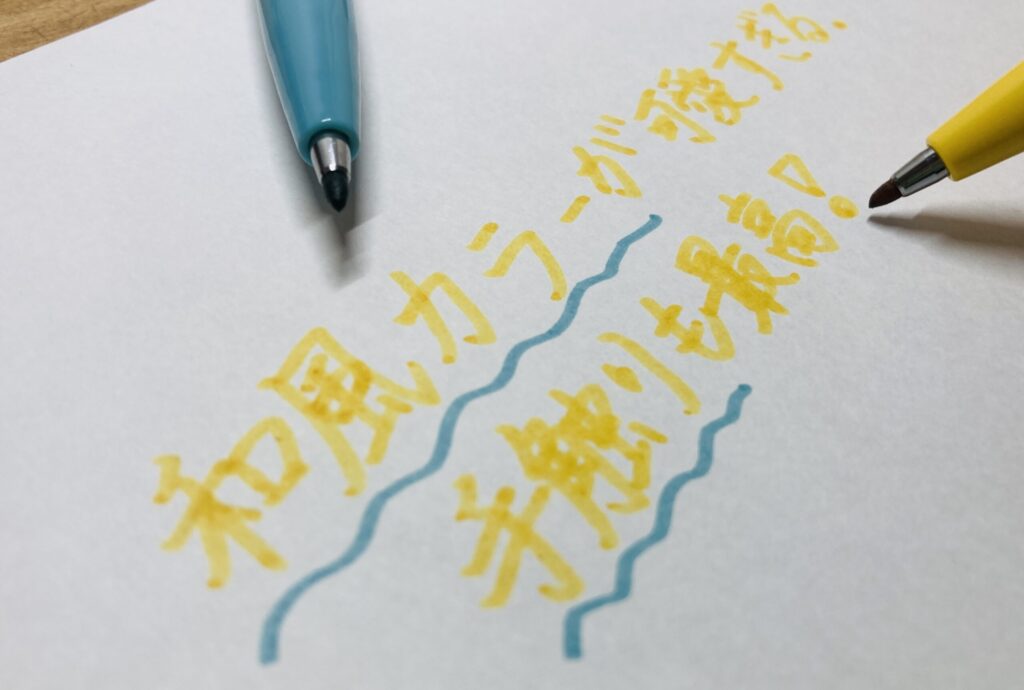 和風カラーが可愛すぎる.
手触りも最高!